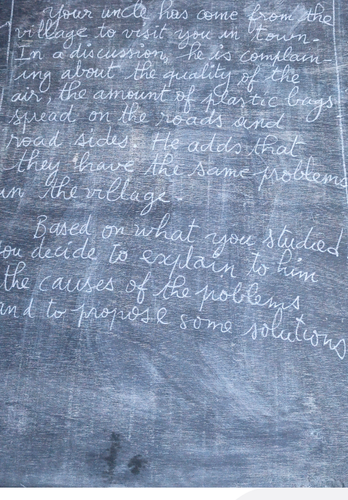 Your uncle has come from the
village to visit you in town.
In a discussion, he is complain-
ing about the quality of the
air, the amount of plastic bags
spread on the roads and
road sides. He adds that
they have the same problems
in the village.
Based on what you studied
you decide to explain to him
the causes of the problems
and to propose some solutions